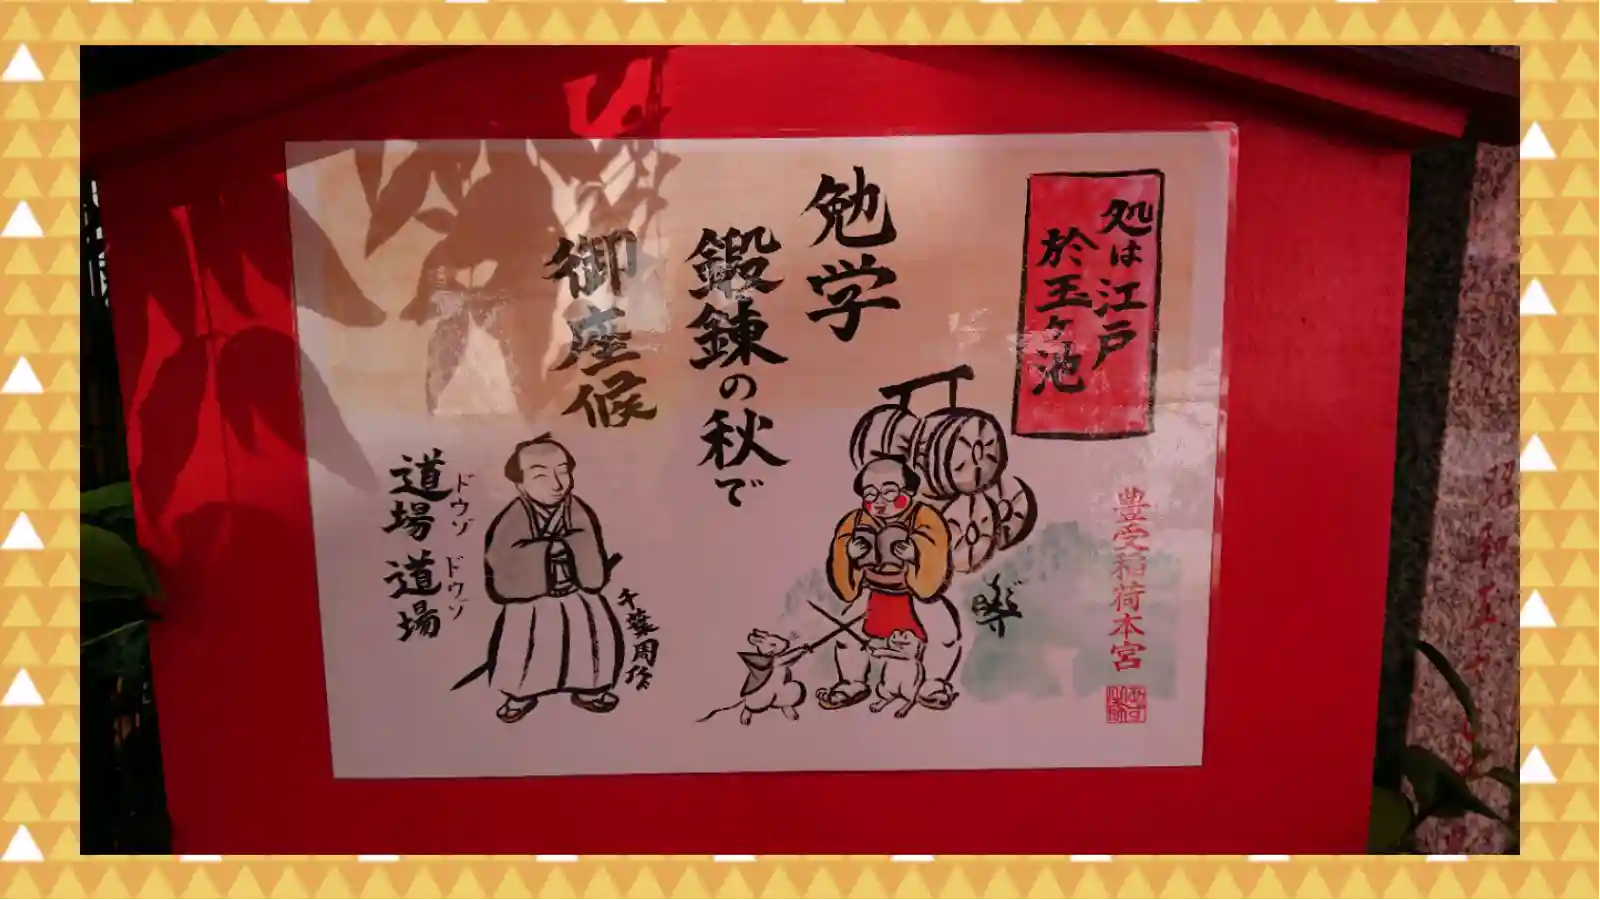 処は江戸
於玉ヶ池
勉学
鍛錬の秋で
御座候
豊受稲荷本宮
千葉周作
ドウゾ
道場
ドウゾ
道場